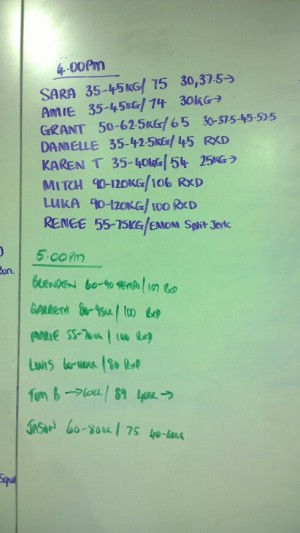 4.00pm
SARA 35-45KG/ 75 30,37.5→
AMIE 35-45KG/ 74 30KG→
GRANT 50-62.5KG/65 30-37.5-45-57.5
DANIELLE 35-42.5KG/45 RXD
KAREN T 35-40KG/54 25KG→
MITCH 90-120KG/106 RXD
LUKA 90-120KG/100 RXD
RENEE 55-75KG/EMOM Split Jerk
5.00pm
BRENDEN 60-90 TEMPO/107 RXD
GARRETH 80-95KG/100 RXD
MARIE 55-70KG/100 RXD
/80 RXD
TOM B →60KG/ 89 40KG→
JASON 60-80KG/ 75 40-60KG
Run.
Squa